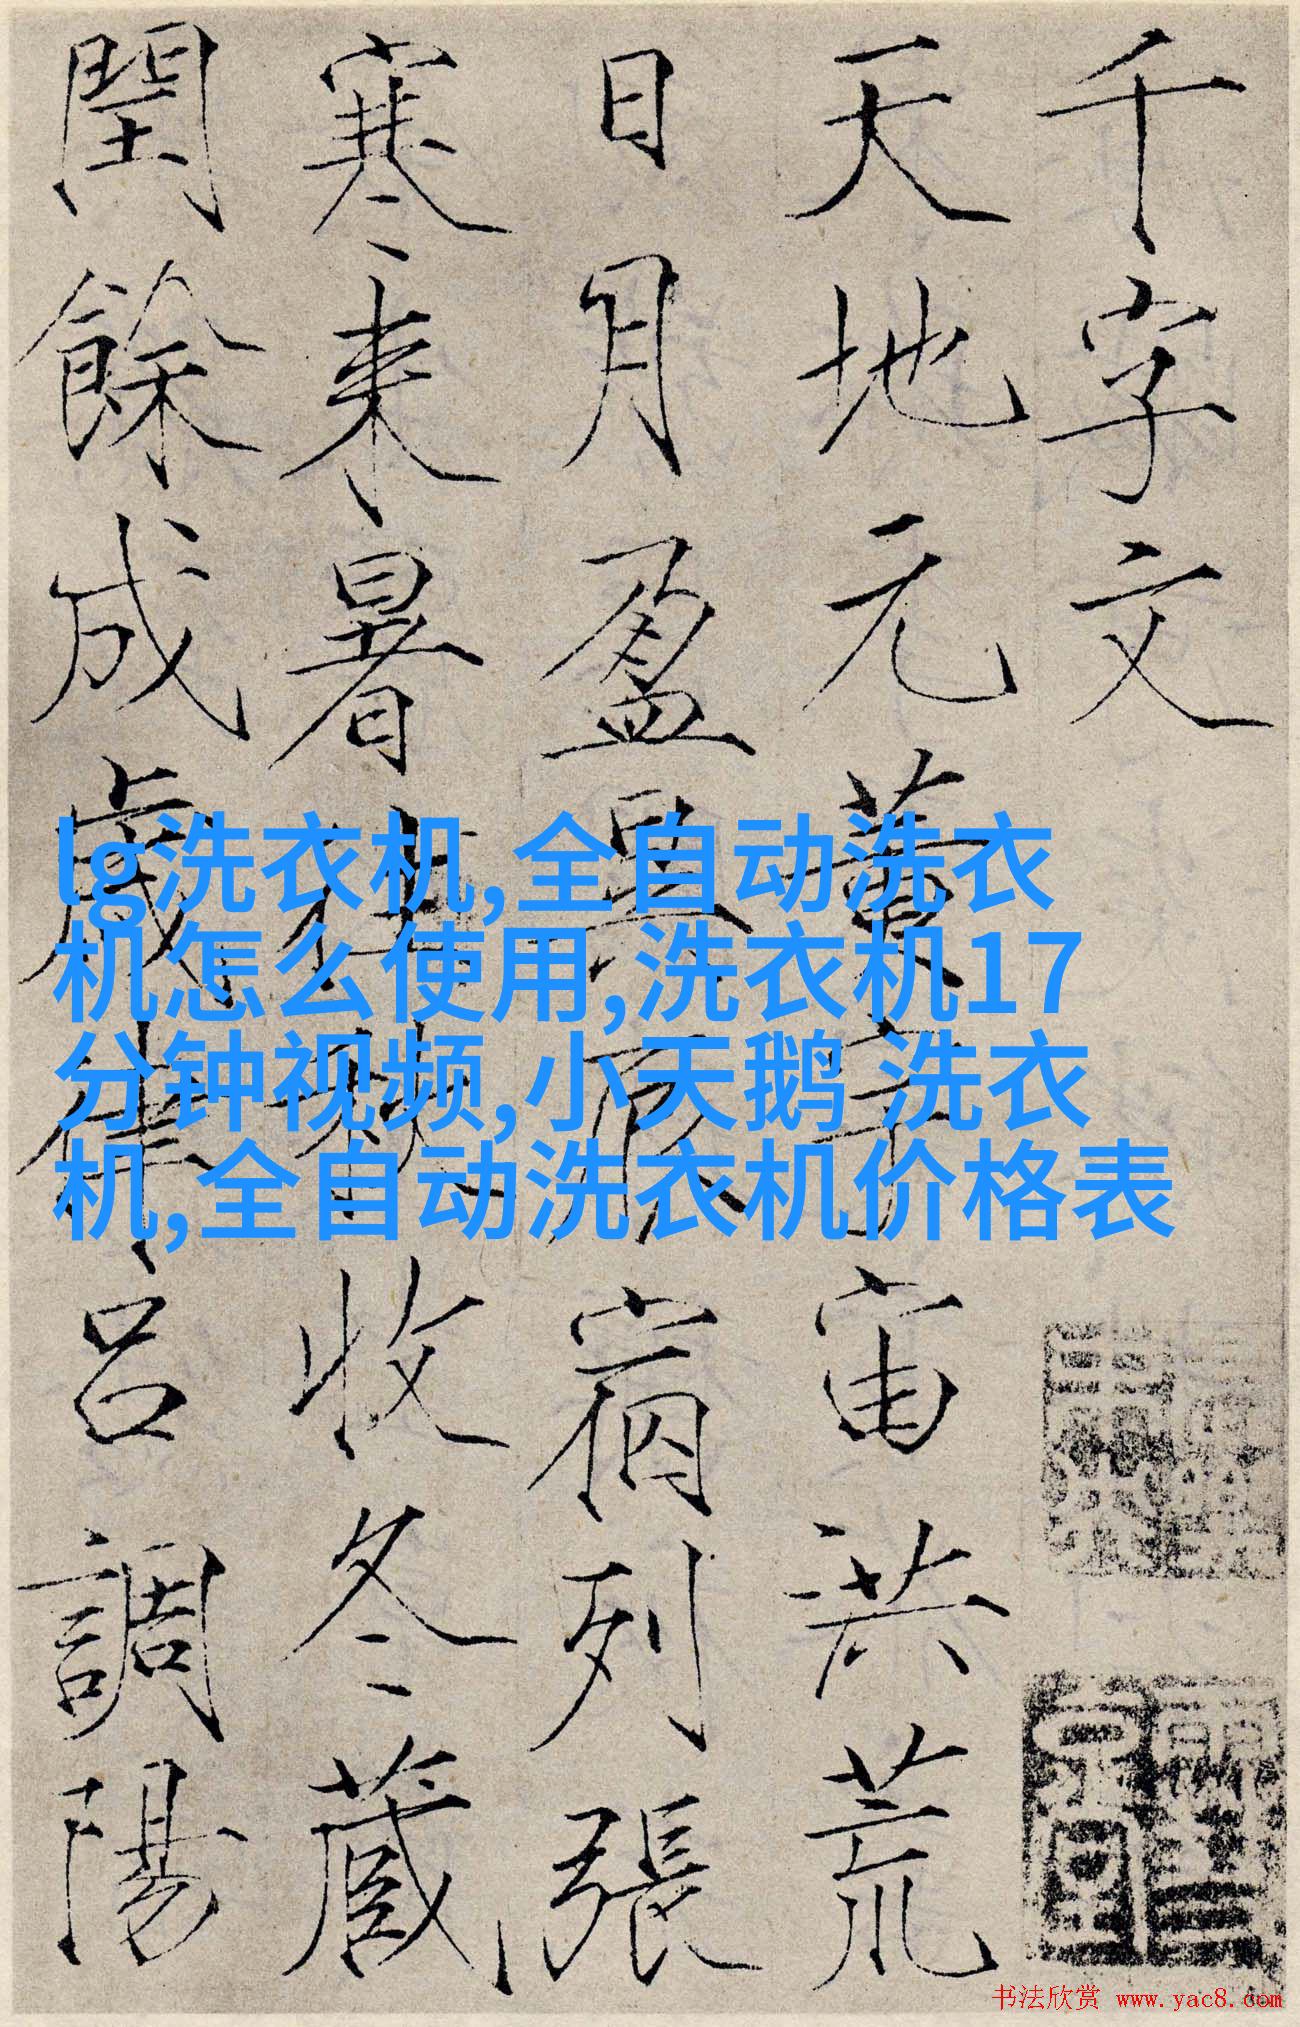 千字文
天地元黃宇宙洪荒
日月盈昃辰宿列張
寒来暑往秋收冬蔵
閏餘成歲律呂調陽
lg洗衣机,全自动洗衣
机怎么使用,洗衣机17
分钟视频,小天鹅 洗衣
机,全自动洗衣机价格表
书法欣赏 www.yac8.com